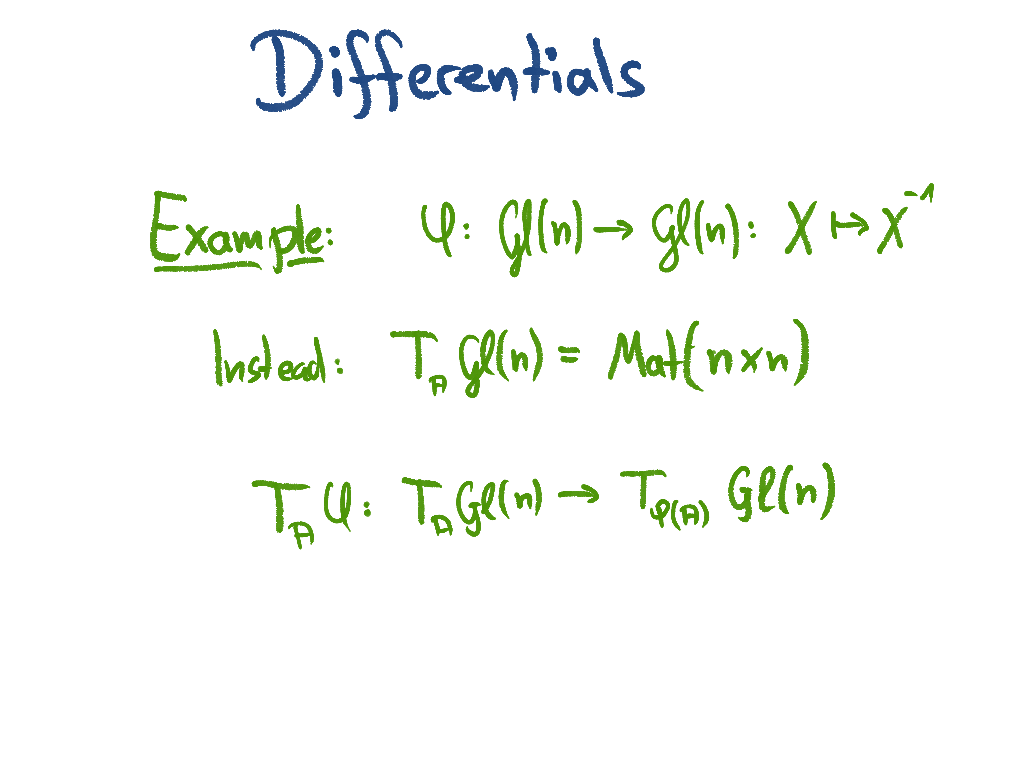 Differentials
Example: φ: Gl(n) → Gl(n): X ↦ X⁻¹
Instead: T_A Gl(n) = Mat(n×n)
T_A φ: T_A Gl(n) → T_φ(A) Gl(n)